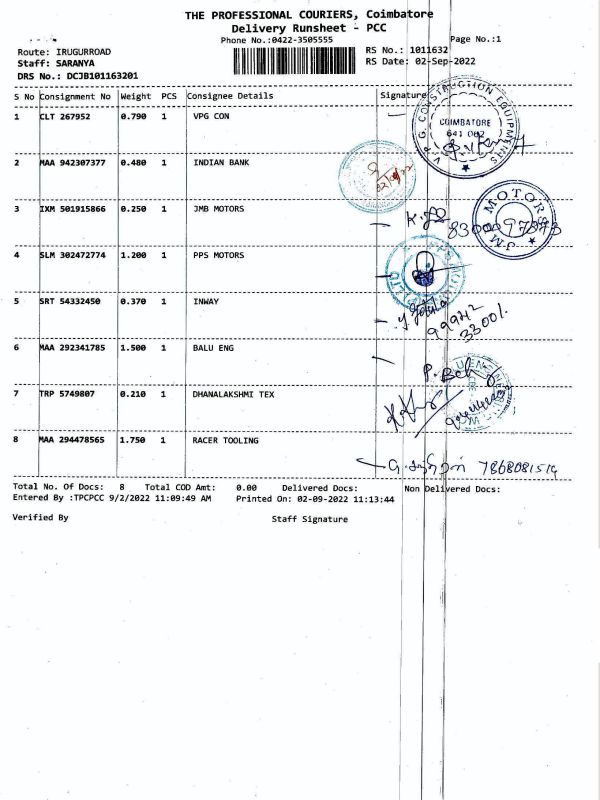 THE PROFESSIONAL COURIERS, Coimbatore
Delivery Runsheet - PCC
Phone No.:0422-3505555
Page No.:1
Route: IRUGURROAD
RS No.: 1011632
Staff: SARANYA
RS Date: 02-Sep-2022
DRS No.: DCJB101163201
S No Consignment No Weight PCS Consignee Details Signature
1 CLT 267952 0.790 1 VPG CON
V.P.G. CONSTRUCTION EQUIPMENTS
COIMBATORE
641 002
2 MAA 942307377 0.480 1 INDIAN BANK
3 IXM 501915866 0.250 1 JMB MOTORS
JM MOTORS
4 SLM 302472774 1.200 1 PPS MOTORS
5 SRT 54332450 0.370 1 INWAY
99942
33001
6 MAA 292341785 1.500 1 BALU ENG
7 TRP 5749807 0.210 1 DHANALAKSHMI TEX
8 MAA 294478565 1.750 1 RACER TOOLING
7868081514
Total No. Of Docs: 8 Total COD Amt: 0.00 Delivered Docs: Non Delivered Docs:
Entered By :TPCPCC 9/2/2022 11:09:49 AM Printed On: 02-09-2022 11:13:44
Verified By Staff Signature